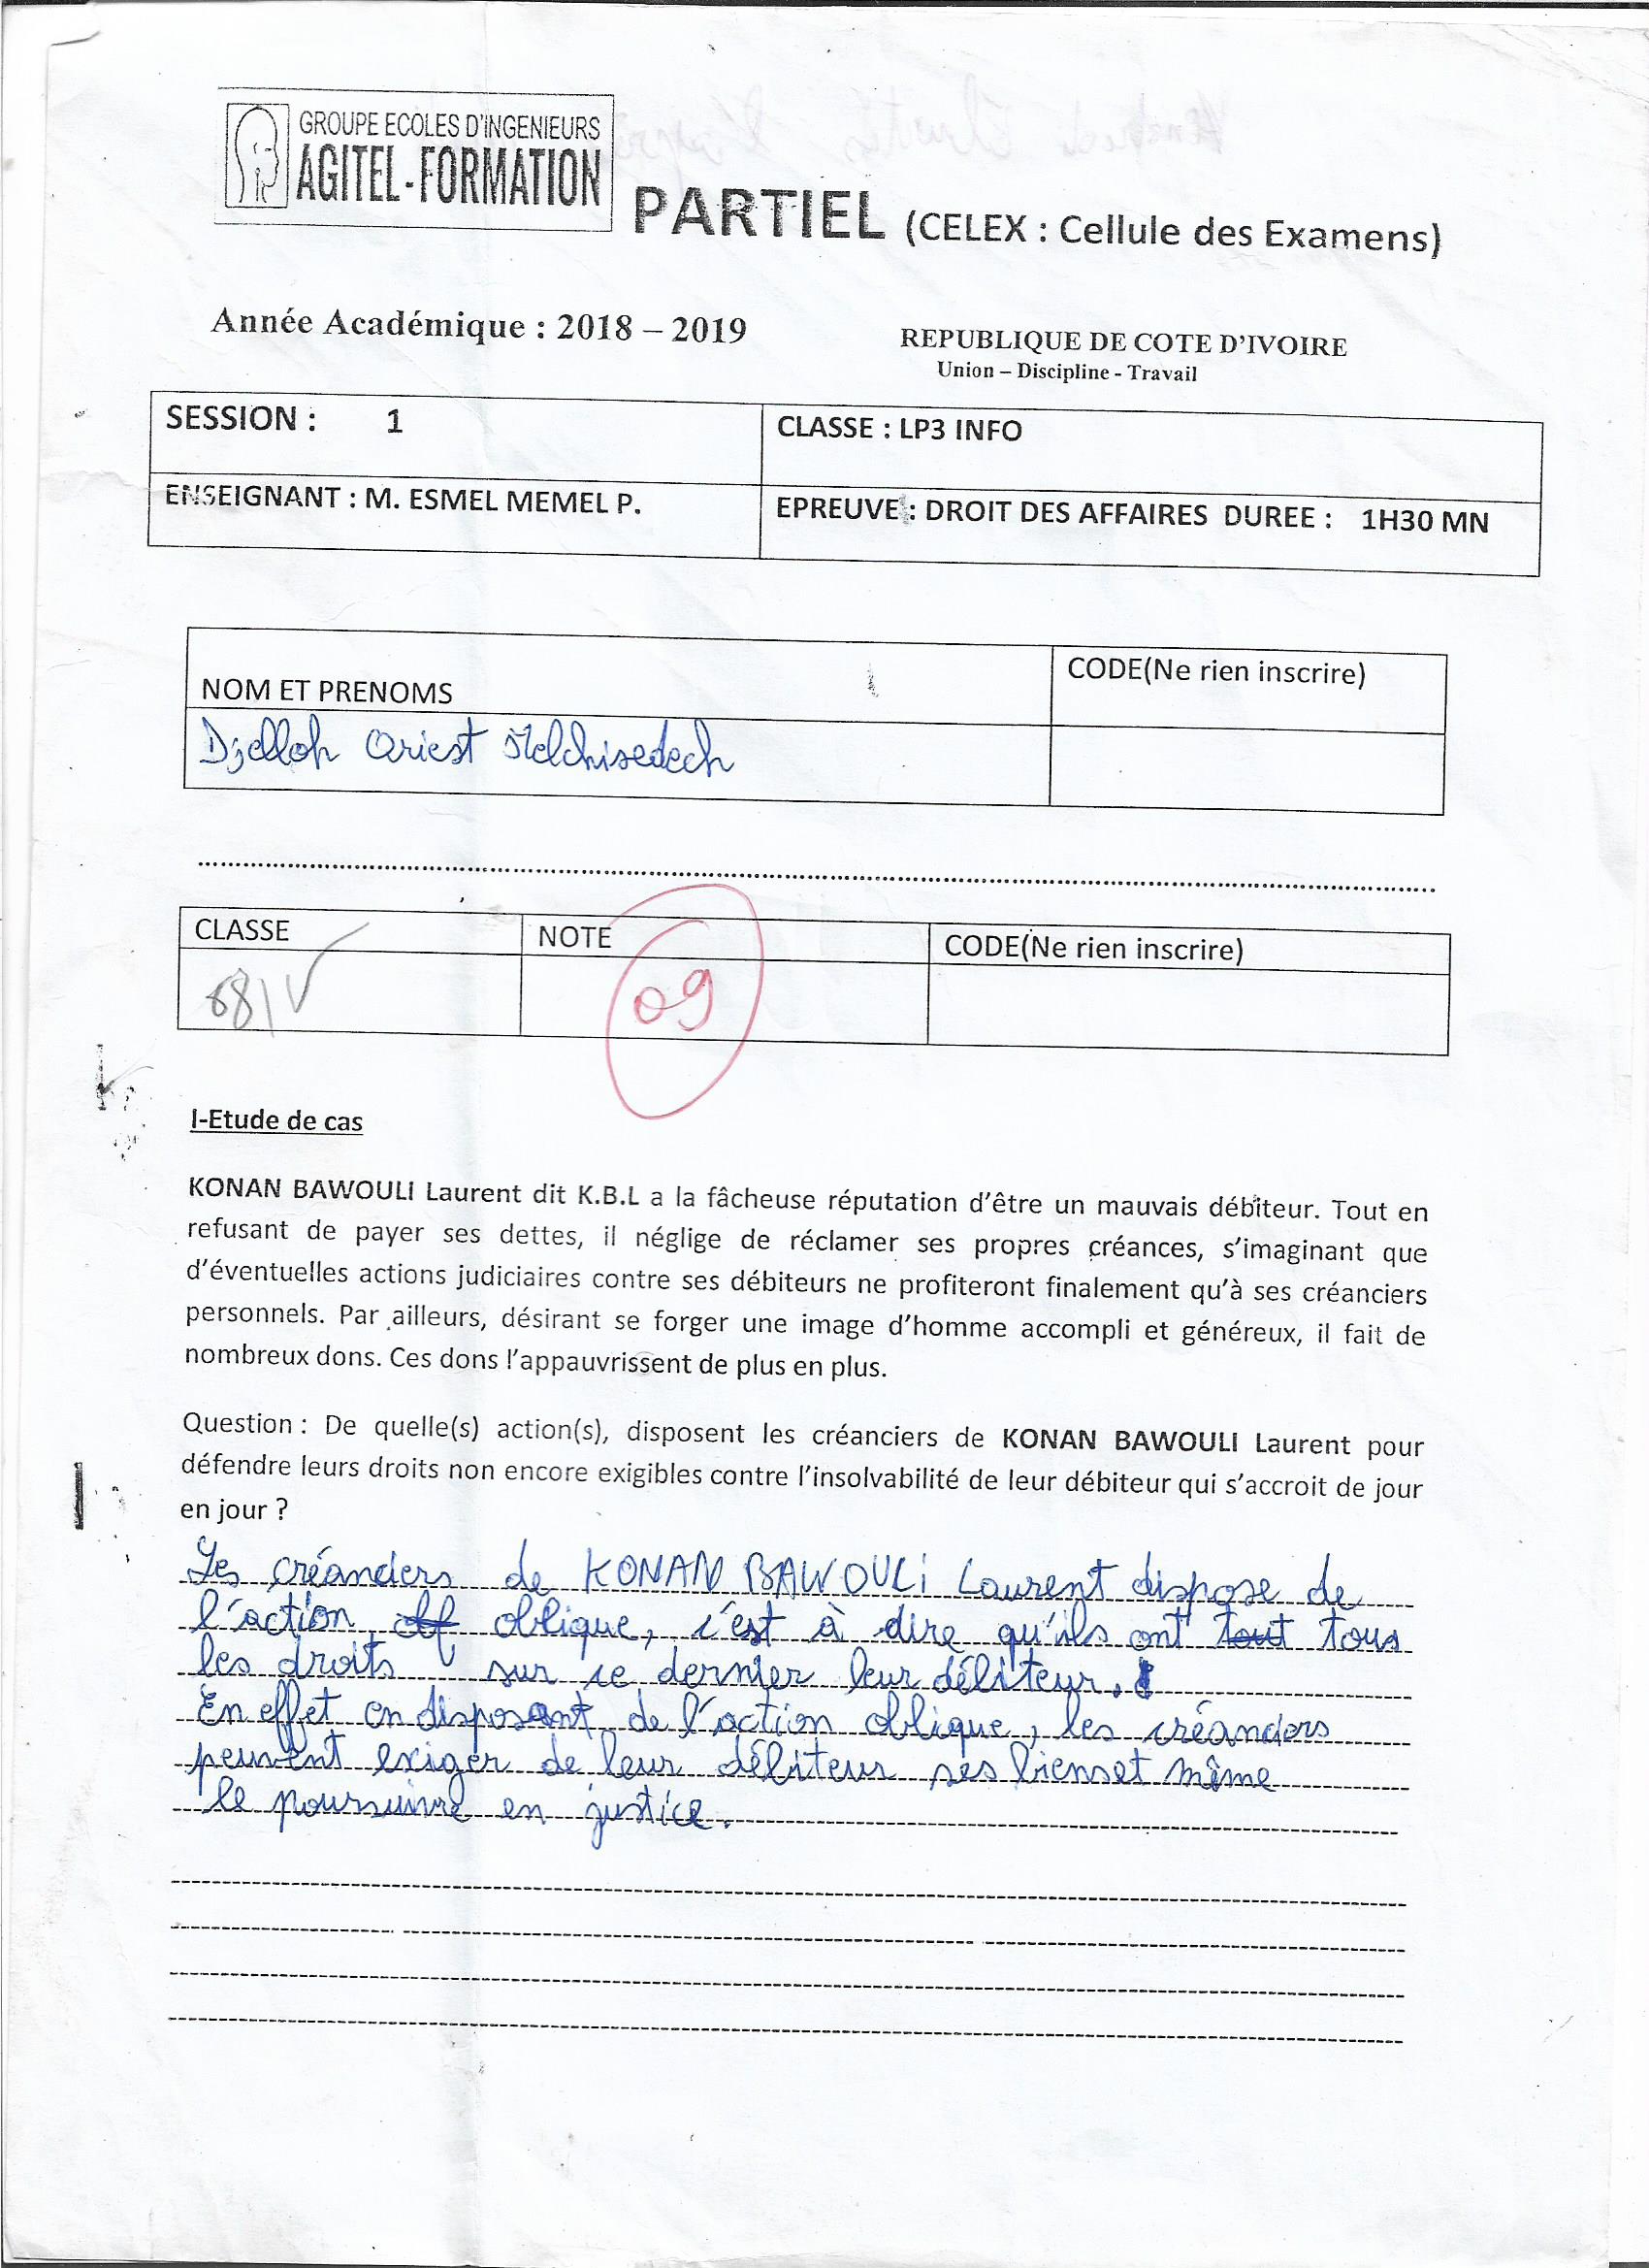 GROUPE ECOLES D'INGENIEURS
AGITEL-FORMATION
PARTIEL (CELEX : Cellule des Examens)
Année Académique : 2018 – 2019
REPUBLIQUE DE COTE D'IVOIRE
Union – Discipline - Travail
SESSION : 1
CLASSE : LP3 INFO
ENSEIGNANT : M. ESMEL MEMEL P.
EPREUVE : DROIT DES AFFAIRES DUREE : 1H30 MN
NOM ET PRENOMS
CODE(Ne rien inscrire)
Djelloh Oriest Melchisedech
CLASSE
NOTE
CODE(Ne rien inscrire)
09
I-Etude de cas
KONAN BAWOULI Laurent dit K.B.L a la fâcheuse réputation d'être un mauvais débiteur. Tout en
refusant de payer ses dettes, il néglige de réclamer ses propres créances, s'imaginant que
d'éventuelles actions judiciaires contre ses débiteurs ne profiteront finalement qu'à ses créanciers
personnels. Par ailleurs, désirant se forger une image d'homme accompli et généreux, il fait de
nombreux dons. Ces dons l'appauvrissent de plus en plus.
Question : De quelle(s) action(s), disposent les créanciers de KONAN BAWOULI Laurent pour
défendre leurs droits non encore exigibles contre l'insolvabilité de leur débiteur qui s'accroit de jour
en jour ?
Les créanciers de KONAN BAWOULi Laurent dispose de
l'action oblique, c'est à dire qu'ils ont tout tous
les droits sur ce dernier leur débiteur.
En effet en disposant de l'action oblique, les créanciers
peuvent exiger de leur débiteur ses biens et même
le poursuivre en justice.